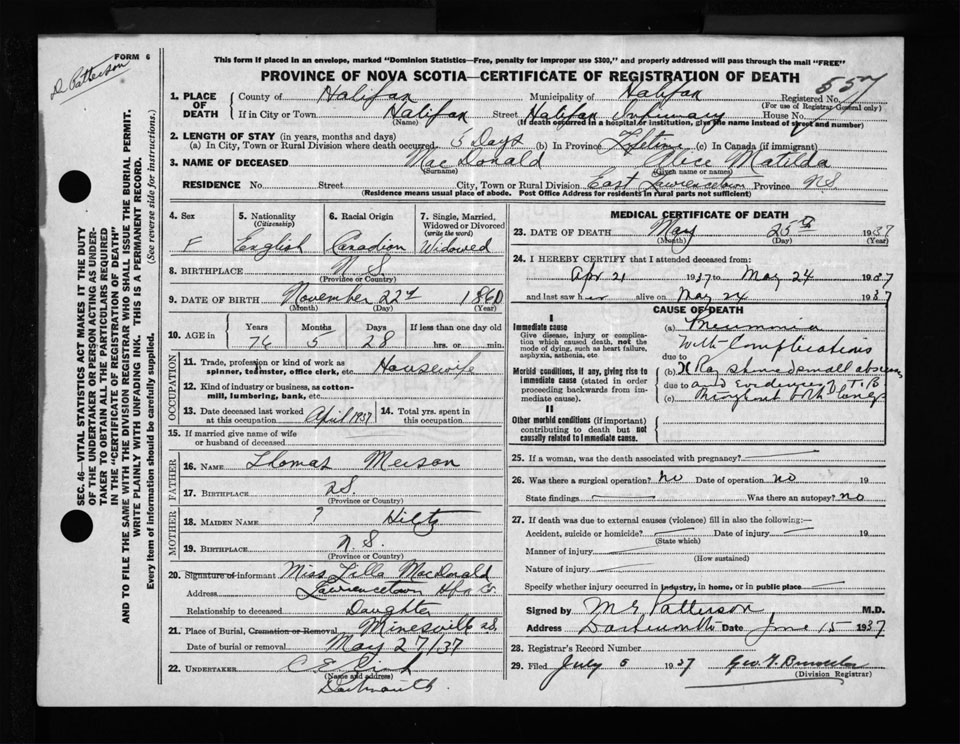 D Patterson
FORM 6
This form if placed in an envelope, marked "Dominion Statistics—Free, penalty for improper use $300," and properly addressed will pass through the mail "FREE"
PROVINCE OF NOVA SCOTIA—CERTIFICATE OF REGISTRATION OF DEATH
557
1. PLACE OF DEATH
County of Halifax Municipality of Halifax Registered No.
(For use of Registrar General only)
If in City or Town Halifax Street Halifax Infirmary House No.
(Name) (If death occurred in a hospital or institution, give the name instead of street and number)
2. LENGTH OF STAY (in years, months and days)
(a) In City, Town or Rural Division where death occurred 5 Days (b) In Province Lifetime (c) In Canada (if immigrant)
3. NAME OF DECEASED MacDonald Alice Matilda
(Surname) (Given name or names)
RESIDENCE No. Street City, Town or Rural Division East Lawrencetown Province NS
(Residence means usual place of abode. Post Office Address for residents in rural parts not sufficient)
4. Sex F
5. Nationality (Citizenship) English
6. Racial Origin Canadian
7. Single, Married, Widowed or Divorced (write the word) Widowed
8. BIRTHPLACE N.S.
(Province or Country)
9. DATE OF BIRTH November 22d 1860
(Month) (Day) (Year)
10. AGE in Years Months Days If less than one day old
76 5 28 hrs. or min.
OCCUPATION
11. Trade, profession or kind of work as spinner, teamster, office clerk, etc. Housewife
12. Kind of industry or business, as cotton-mill, lumbering, bank, etc.
13. Date deceased last worked at this occupation April 1937
14. Total yrs. spent in this occupation
15. If married give name of wife or husband of deceased
FATHER
16. NAME Thomas Meison
17. BIRTHPLACE N.S.
(Province or Country)
MOTHER
18. MAIDEN NAME ? Hiltz
19. BIRTHPLACE N.S.
(Province or Country)
20. Signature of informant Miss Lilla MacDonald
Address Lawrencetown Hfx Co.
Relationship to deceased Daughter
21. Place of Burial, Cremation or Removal Minesville N.S.
Date of burial or removal May 27/37
22. UNDERTAKER
(Name and address)
Dartmouth
MEDICAL CERTIFICATE OF DEATH
23. DATE OF DEATH May 25th 1937
(Month) (Day) (Year)
24. I HEREBY CERTIFY that I attended deceased from:
Apr 21 1937 to May 24 1937
and last saw her alive on May 24 1937
CAUSE OF DEATH
I
Immediate cause
Give disease, injury or complication which caused death, not the mode of dying, such as heart failure, asphyxia, asthenia, etc
Morbid conditions, if any, giving rise to immediate cause (stated in order proceeding backwards from immediate cause).
II
Other morbid conditions (if important) contributing to death but not causally related to immediate cause.
(a) Pneumonia
With Complications
due to
(b) X Ray showed small abscess
due to and Evidences of T.B
(c) throughout both lungs
25. If a woman, was the death associated with pregnancy?
26. Was there a surgical operation? no Date of operation no 19
State findings Was there an autopsy? no
27. If death was due to external causes (violence) fill in also the following:—
Accident, suicide or homicide? Date of injury 19
(State which)
Manner of injury
(How sustained)
Nature of injury
Specify whether injury occurred in industry, in home, or in public place
Signed by M G Patterson M.D.
Address Dartmouth Date June 15 1937
28. Registrar's Record Number
29. Filed July 5 1937
(Division Registrar)
SEC. 46—VITAL STATISTICS ACT MAKES IT THE DUTY
OF THE UNDERTAKER OR PERSON ACTING AS UNDERTAKER
TO OBTAIN ALL THE PARTICULARS REQUIRED
IN THE "CERTIFICATE OF REGISTRATION OF DEATH"
AND TO FILE THE SAME WITH THE DIVISION REGISTRAR WHO SHALL ISSUE THE BURIAL PERMIT.
WRITE PLAINLY WITH UNFADING INK. THIS IS A PERMANENT RECORD.
Every item of information should be carefully supplied. (See reverse side for instructions.)